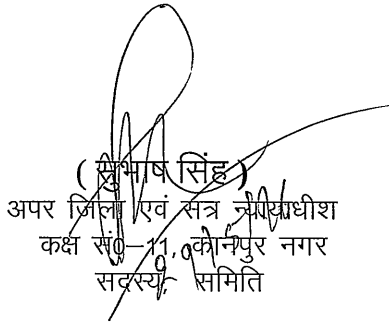 ( सुभाष सिंह )
अपर जिला एवं सत्र न्यायाधीश
कक्ष सं०-11, कानपुर नगर
सदस्य, समिति